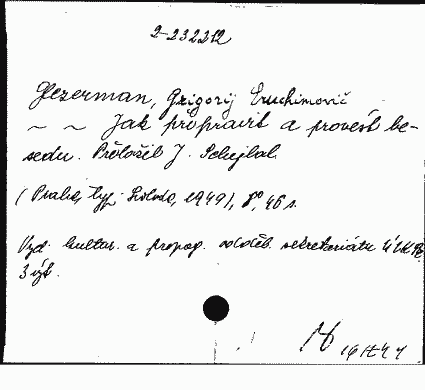 2-232212
Glezerman, Grigorij Eruchimovič
~ ~ Jak připravit a provést be-
sedu. Přeložil J. Schejbal.
(Praha, Svoboda, 1949), 8°, 46 s.
Vyd. kultur. a propag. odděl. sekretariátu ÚVKSČ
3 výt.